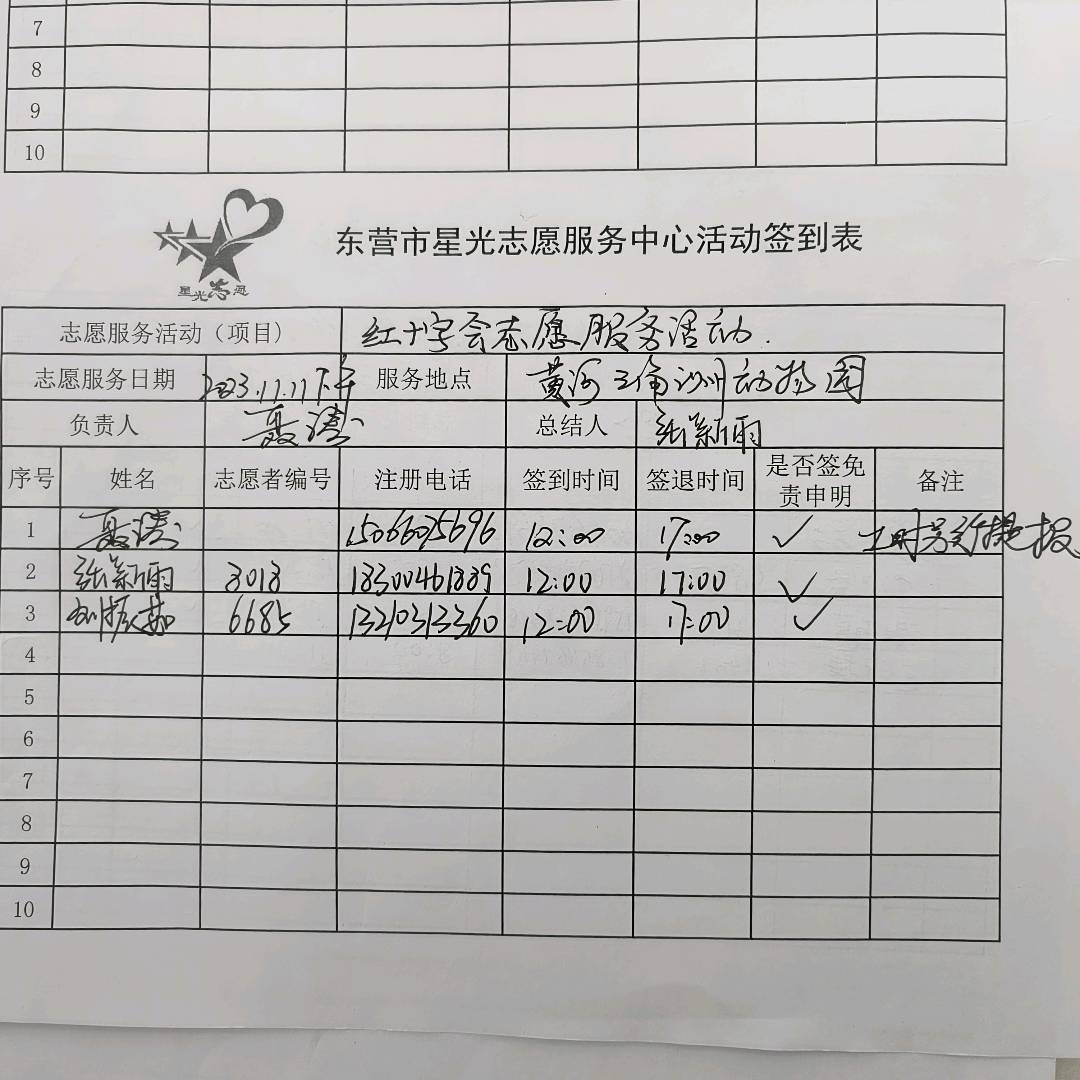 7
8
9
10
星光志愿
东营市星光志愿服务中心活动签到表
志愿服务活动（项目） 红十字会志愿服务活动.
志愿服务日期 2023.11.11下午 服务地点 黄河三角洲动物园
负责人 聂涛 总结人 张新雨
序号 姓名 志愿者编号 注册电话 签到时间 签退时间 是否签免责申明 备注
1 聂涛 15066075696 12:00 17:00 ✓ 工时另行提报
2 张新雨 3018 18300461889 12:00 17:00 ✓
3 6685 13210313360 12:00 17:00 ✓
4
5
6
7
8
9
10